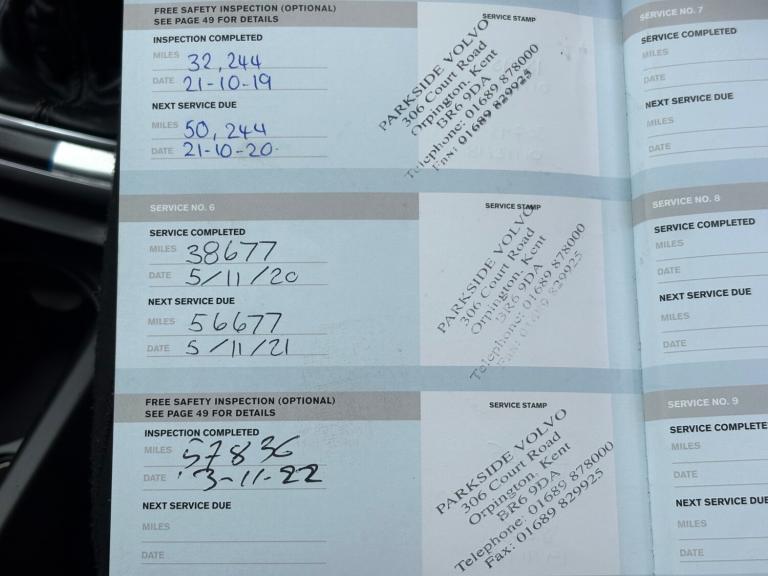 FREE SAFETY INSPECTION (OPTIONAL)
SEE PAGE 49 FOR DETAILS
INSPECTION COMPLETED
MILES 32,244
DATE 21-10-19
NEXT SERVICE DUE
MILES 50,244
DATE 21-10-20
SERVICE STAMP
PARKSIDE VOLVO
306 Court Road
Orpington, Kent
BR6 9DA
Telephone: 01689 878000
Fax: 01689 829925
SERVICE NO. 6
SERVICE COMPLETED
MILES 38677
DATE 5/11/20
NEXT SERVICE DUE
MILES 56677
DATE 5/11/21
SERVICE STAMP
PARKSIDE VOLVO
306 Court Road
Orpington, Kent
BR6 9DA
Telephone: 01689 878000
Fax: 01689 829925
FREE SAFETY INSPECTION (OPTIONAL)
SEE PAGE 49 FOR DETAILS
INSPECTION COMPLETED
MILES 57836
DATE 3-11-22
NEXT SERVICE DUE
MILES
DATE
SERVICE STAMP
PARKSIDE VOLVO
306 Court Road
Orpington, Kent
BR6 9DA
Telephone: 01689 878000
Fax: 01689 829925
SERVICE NO. 7
SERVICE COMPLETED
MILES
DATE
NEXT SERVICE DUE
MILES
DATE
SERVICE NO. 8
SERVICE COMPLETED
MILES
DATE
NEXT SERVICE DUE
MILES
DATE
SERVICE NO. 9
SERVICE COMPLETE
MILES
DATE
NEXT SERVICE DUE
MILES
DATE